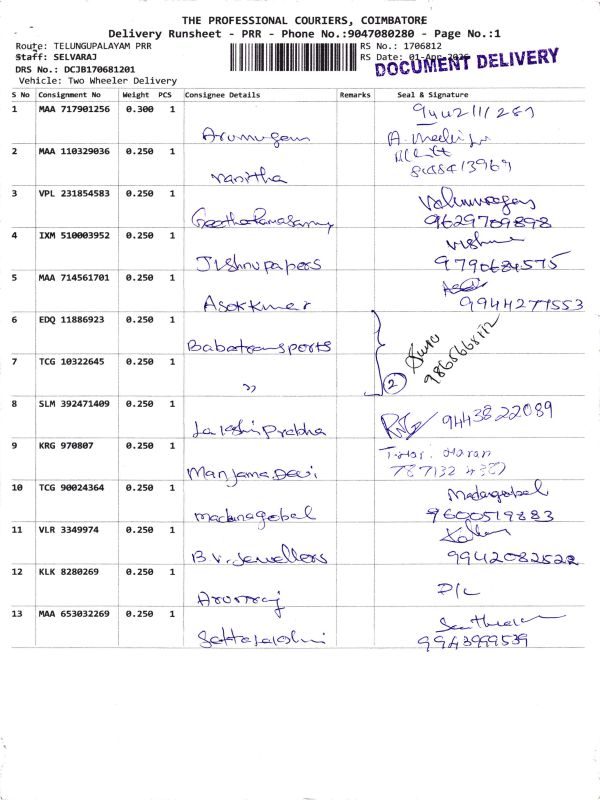 THE PROFESSIONAL COURIERS, COIMBATORE
Delivery Runsheet - PRR - Phone No.:9047080280 - Page No.:1
Route: TELUNGUPALAYAM PRR
RS No.: 1706812
Staff: SELVARAJ
RS Date: 01-Apr-2026
DOCUMENT DELIVERY
DRS No.: DCJB170681201
Vehicle: Two Wheeler Delivery
S No Consignment No Weight PCS Consignee Details Remarks Seal & Signature
1 MAA 717901256 0.300 1
Arumugam
2 MAA 110329036 0.250 1
Vanitha
3 VPL 231854583 0.250 1
9629709898
4 IXM 510003952 0.250 1 Vishnu
Jishnupapers 9790684575
5 MAA 714561701 0.250 1
Asokkumar 9944277553
6 EDQ 11886923 0.250 1
Babatransports
7 TCG 10322645 0.250 1
" 2
8 SLM 392471409 0.250 1 9443822089
Lakshiprabha
9 KRG 970807 0.250 1
ManjamaDevi
10 TCG 90024364 0.250 1 Madangopal
madanagopal 9600519883
11 VLR 3349974 0.250 1
B.V. Jewellers 9942082522
12 KLK 8280269 0.250 1 D/L
13 MAA 653032269 0.250 1
9943999539